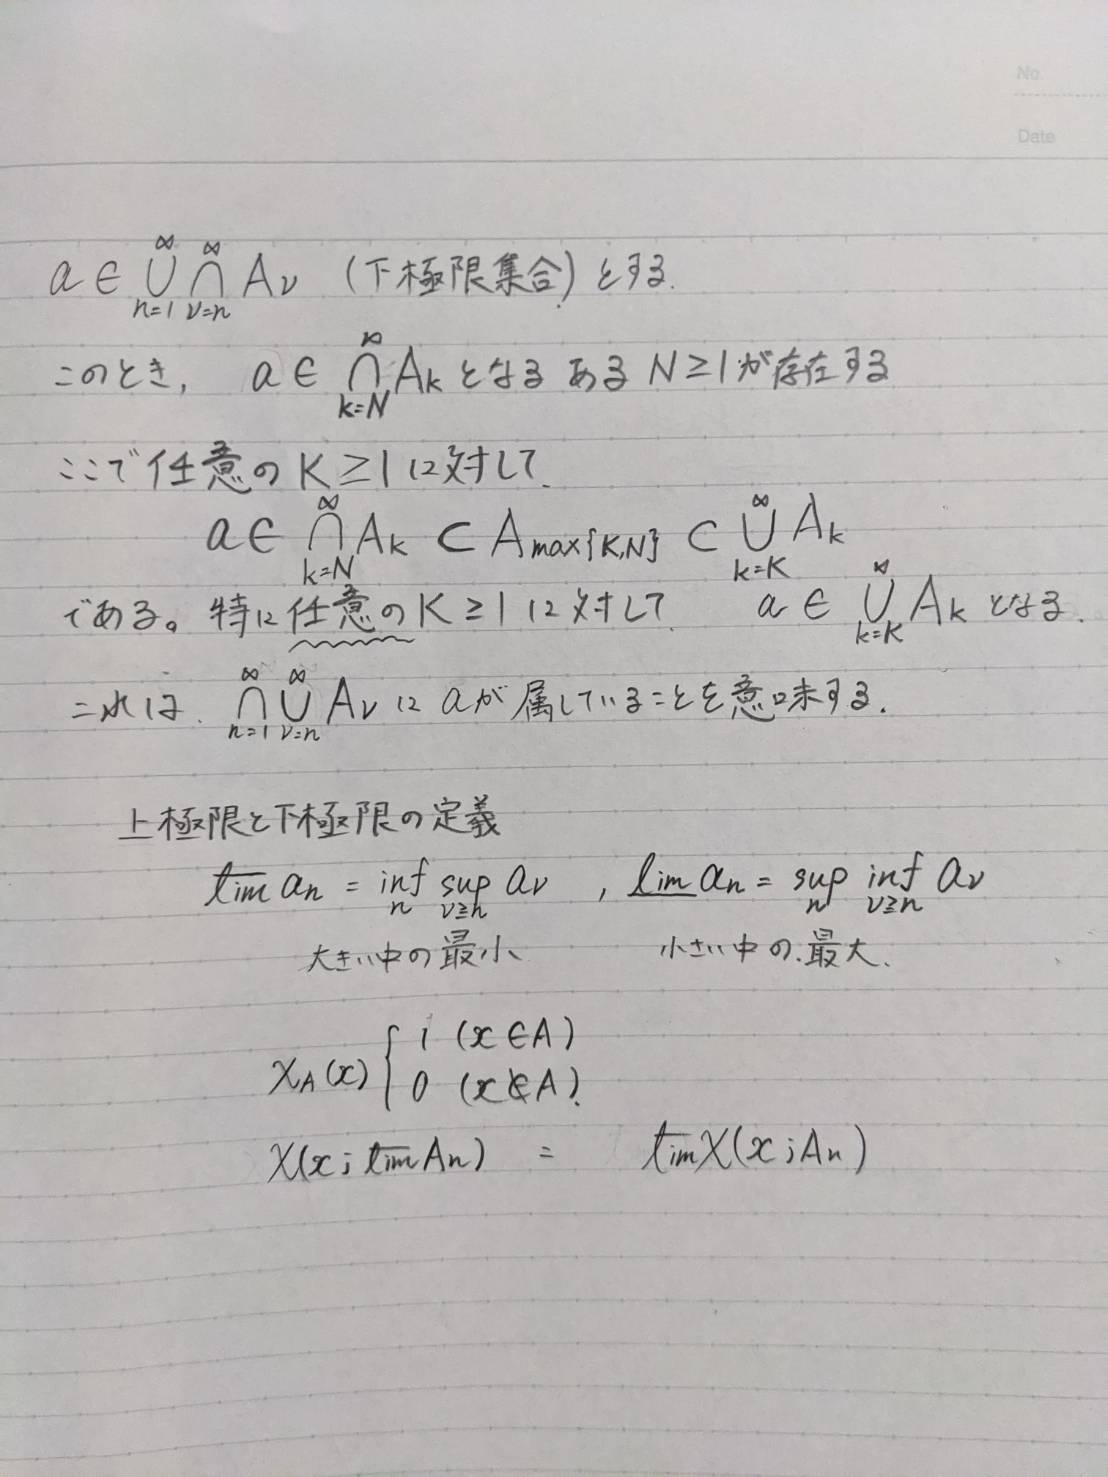 No.
Date
a ∈ ∞⋃n=1 ∞⋂ν=n Aν (下極限集合)とする.
このとき, a ∈ ∞⋂k=N Ak となる ある N≥1が存在する
ここで任意の K≥1に対して.
a ∈ ∞⋂k=N Ak ⊂ Amax{K,N} ⊂ ∞⋃k=K Ak
である。特に任意のK≥1に対して a ∈ ∞⋃k=K Ak となる.
これは. ∞⋂n=1 ∞⋃ν=n Aν に aが属していることを意味する.
上極限と下極限の定義
l̅i̅m̅ an = inf n sup ν≥n aν , l̲i̲m̲ an = sup n inf ν≥n aν
大きい中の最小 小さい中の.最大.
χA(x) { 1 (x∈A)
0 (x∉A).
χ(x; l̅i̅m̅ An) = l̅i̅m̅ χ(x;An)